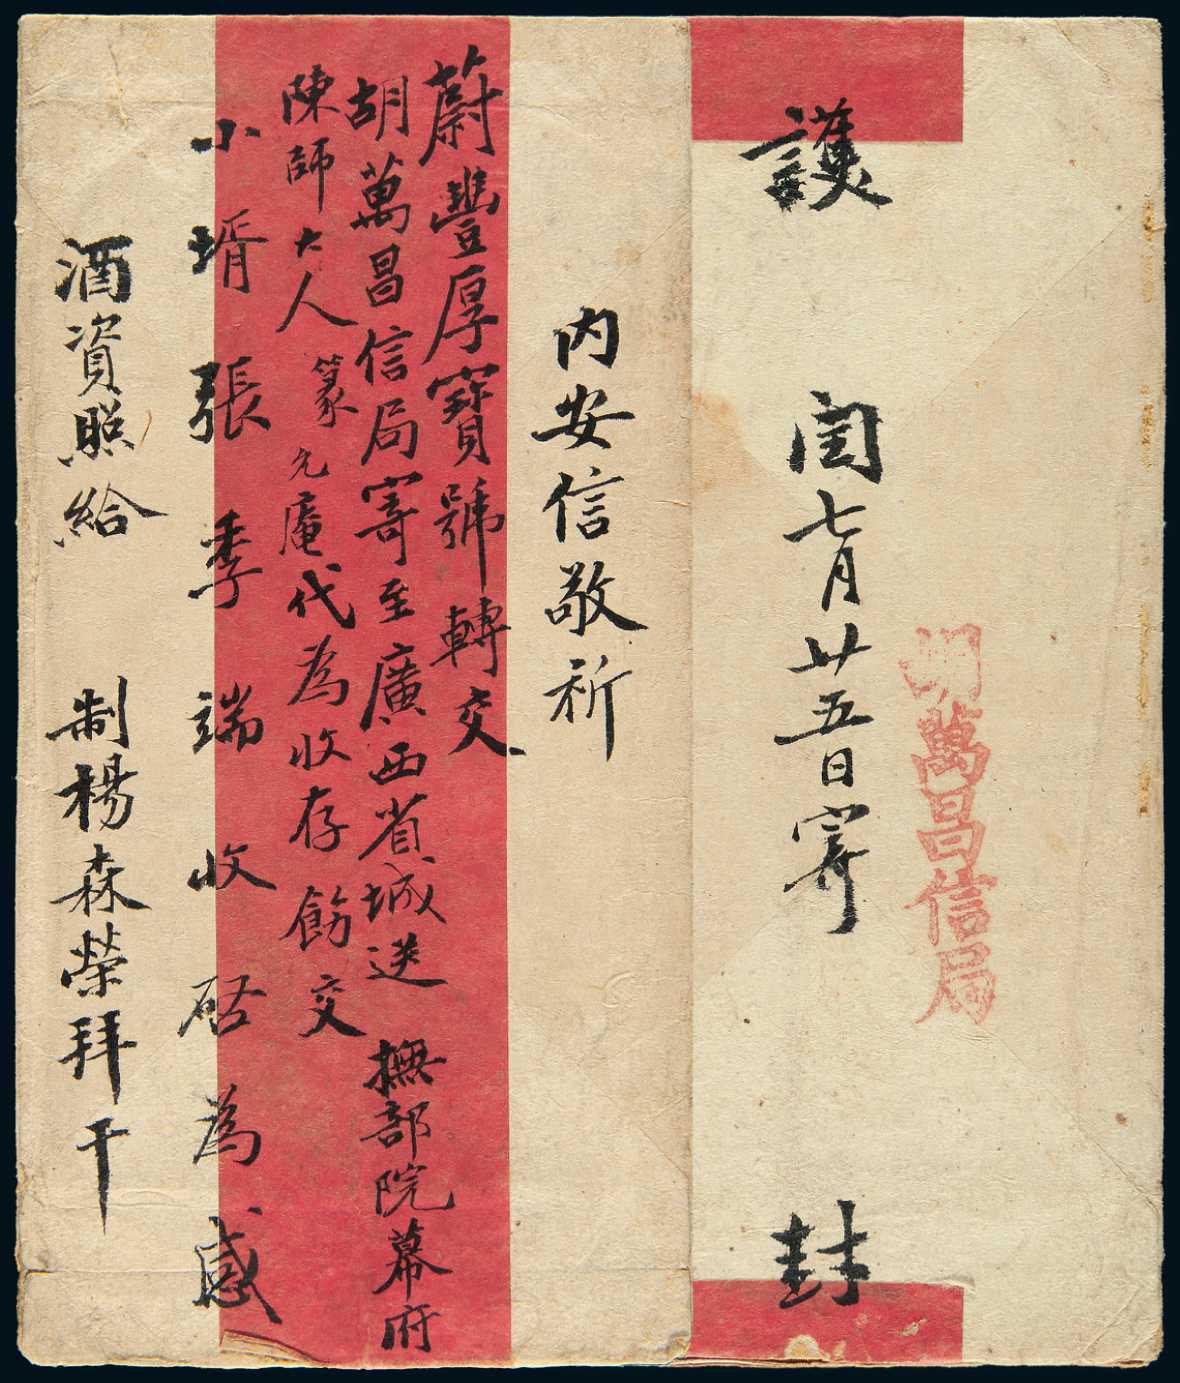 護
閏七月廿五日寄
封
胡萬昌信局
內安信敬祈
蔚豐厚寶號轉交
胡萬昌信局寄至廣西省城送 撫部院幕府
陳師大人 篆 允庵代為收存飭交
小壻張季端收啓為感
酒資照給 制楊森榮拜干